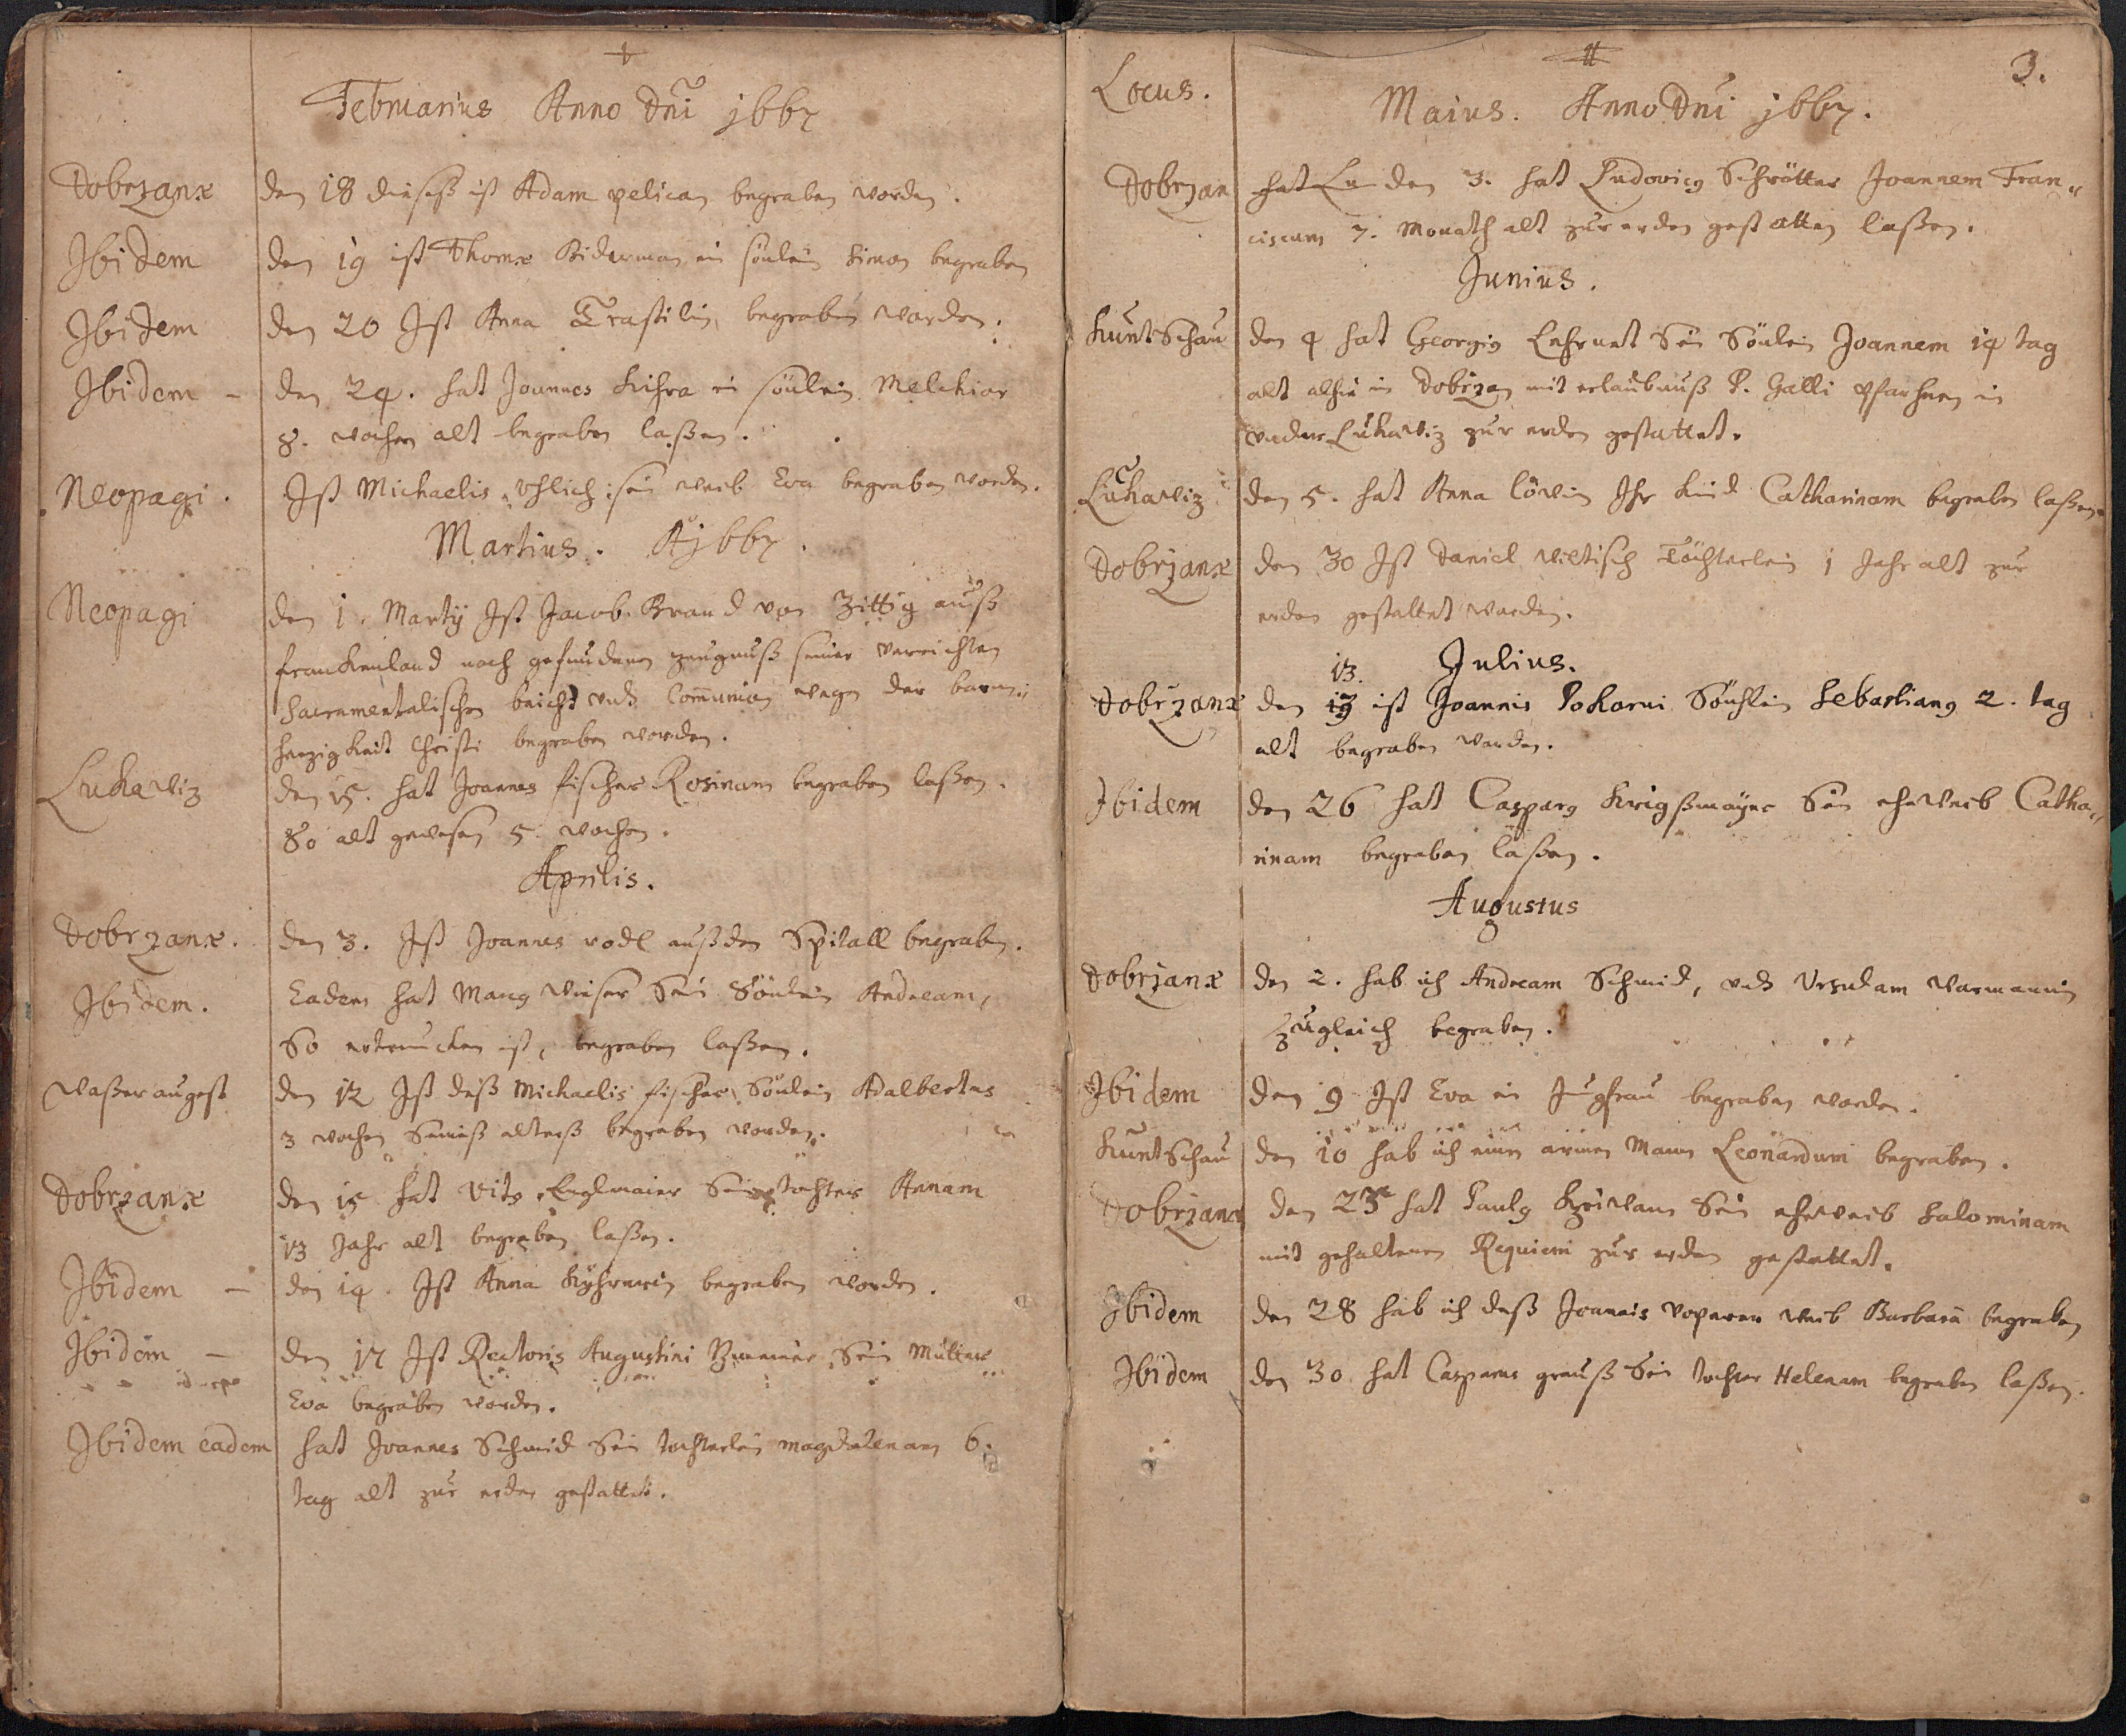 Februarius Anno Dni 1667
Dobrzanæ den 18 dieseß ist Adam pelican begraben worden.
Ibidem den 19 ist Thomæ Biderman ein sönlein Simon begraben
Ibidem den 20 Ist Anna Trastilin begraben worden.
Ibidem - den 24. hat Joannes Kihra ei sönlein Melchior
8. wochen alt begraben laßen.
Neopagi. Ist Michaelis Uhlich sein weib Eva begraben worden.
Martius. A 1667.
Neopagi den 1. Martij Ist Jacob Brand von Zittig auß
franckenland nach gefundenen zeugnuß seiner verrichten
Sacramentalischen beicht undt Communion wegen der barm-
herzigkeit Christi begraben worden.
Lukawiz den 15. hat Joannes fischer Rosinam begraben laßen.
So alt gewesen 5. wochen.
Aprilis.
Dobrzanæ. den 3. Ist Joannes rodl auß den Spitall begraben.
Ibidem. Eadem hat Marcg Wieser Sein Sönlein Andream,
So ertruncken ist, begraben laßen.
Waßeraugest den 12 Ist deß Michaelis fischer Sönlein Adalbertus
3 wochen Seineß alterß begraben worden.
Dobrzanæ den 15 hat Vitg Englmaier Sein tochter Annam
13 Jahr alt begraben laßen.
Ibidem - den 14. Ist Anna begraben worden.
Ibidem - den 17 Ist Rectoris Augustini Sein Mutter
Eva begraben worden.
Ibidem eadem hat Joannes Schmid Sein tochterlein magdalenam 6.
tag alt zur erden gestattet.
3.
Locus. Maius. Anno Dni 1667.
Dobrzan hat Lu den 3. hat Ludovicg Schrötter Joannem Fran-
ciscum 7. Monath alt zur erden gestatten laßen.
Junius.
KuntSchau den 4 hat Georgig Lehruet Sein Sönlein Joannem 14 tag
alt alhie in Dobrzan mit erlaubnuß P. Galli Pfarherrn in
under Lukawiz zur erden gestattet.
Lukawiz den 5. hat Anna löwin Ihr Kind Catharinam begraben laßen.
Dobrzanæ den 30 Ist Daniel Wiltisch Töchterlein 1 Jahr alt zur
erden gestattet worden.
Julius.
13.
Dobrzanæ den 19 ist Joannis Pokorni Söuhlein Sebastiang 2. tag
alt begraben worden.
Ibidem den 26 hat Casparg Krigßmayer Sein eheweib Catha-
rinam begraben laßen.
Augustus
Dobrzanæ den 2. hab ich Andream Schmid, undt Ursulam Warmanin
zugleich begraben.
Ibidem den 9 Ist Eva ein Jungfrau begraben worden.
KuntSchau den 10 hab ich einen armen Mann Leonardum begraben.
Dobrzanæ den 23 hat Paulg Sein eheweib Salominam
mit gehaltenen Requiem zur erden gestattet.
Ibidem den 28 hab ich deß Joannis weib Barbara begraben
Ibidem den 30. hat Casparus grauß Sein tochter Helenam begraben laßen.